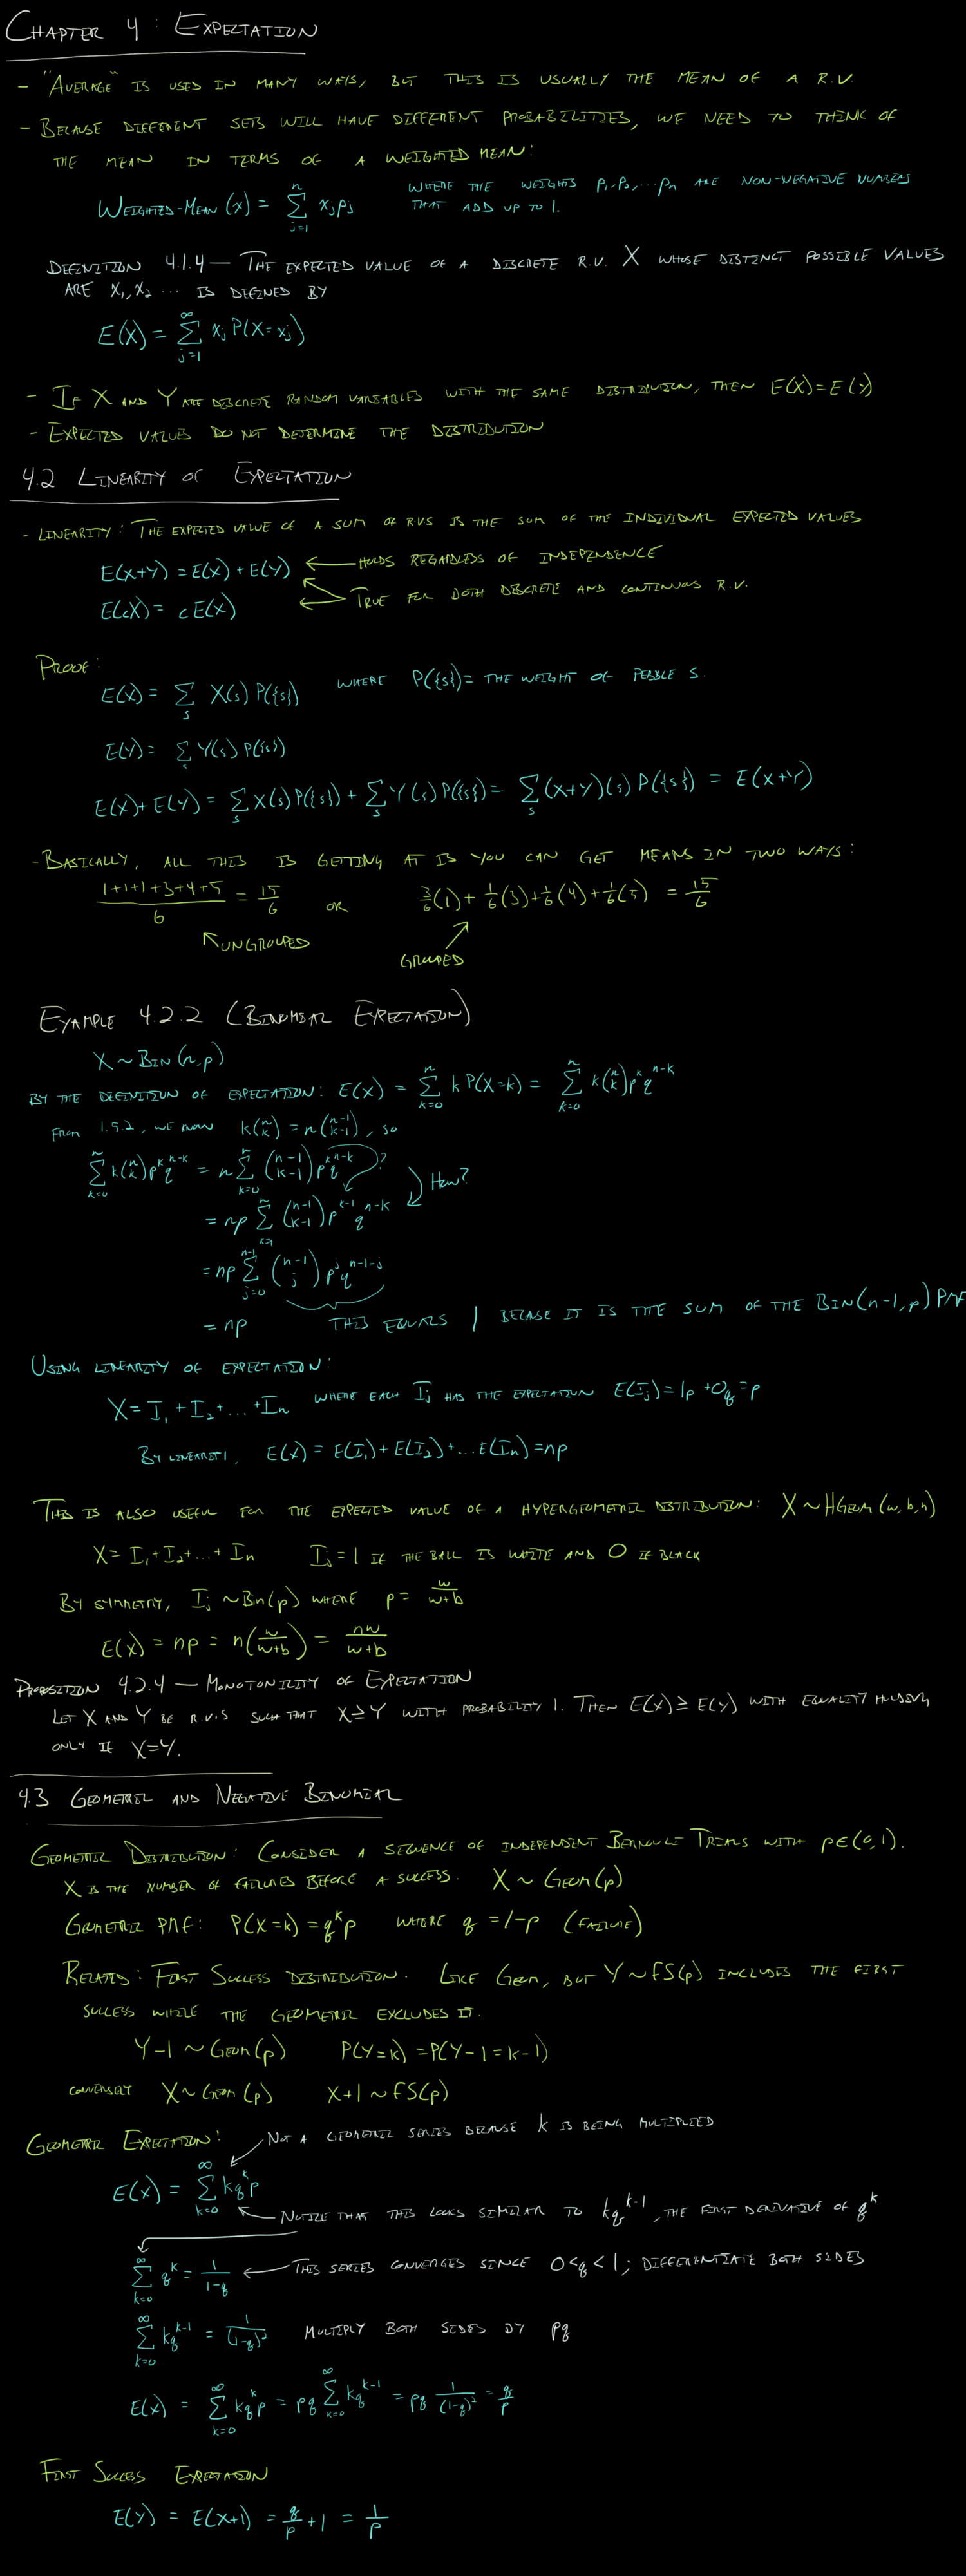 CHAPTER 4 : EXPECTATION
- "AVERAGE" IS USED IN MANY WAYS, BUT THIS IS USUALLY THE MEAN OF A R.V
- BECAUSE DIFFERENT SETS WILL HAVE DIFFERENT PROBABILITIES, WE NEED TO THINK OF
THE MEAN IN TERMS OF A WEIGHTED MEAN:
WEIGHTED-MEAN (x) = Σ_{j=1}^{n} x_j p_j WHERE THE WEIGHTS p_1, p_2, ... p_n ARE NON-NEGATIVE NUMBERS
THAT ADD UP TO 1.
DEFINITION 4.1.4 — THE EXPECTED VALUE OF A DISCRETE R.V. X WHOSE DISTINCT POSSIBLE VALUES
ARE X_1, X_2 ... IS DEFINED BY
E(X) = Σ_{j=1}^{∞} x_j P(X = x_j)
- IF X AND Y ARE DISCRETE RANDOM VARIABLES WITH THE SAME DISTRIBUTION, THEN E(X) = E(Y)
- EXPECTED VALUES DO NOT DETERMINE THE DISTRIBUTION
4.2 LINEARITY OF EXPECTATION
- LINEARITY: THE EXPECTED VALUE OF A SUM OF RVS IS THE SUM OF THE INDIVIDUAL EXPECTED VALUES
E(X+Y) = E(X) + E(Y) ← HOLDS REGARDLESS OF INDEPENDENCE
E(cX) = cE(X) ← TRUE FOR BOTH DISCRETE AND CONTINUOUS R.V.
PROOF:
E(X) = Σ_s X(s) P({s}) WHERE P({s}) = THE WEIGHT OF PEBBLE S.
E(Y) = Σ_s Y(s) P({s})
E(X) + E(Y) = Σ_s X(s) P({s}) + Σ_s Y(s) P({s}) = Σ_s (X+Y)(s) P({s}) = E(X+Y)
- BASICALLY, ALL THIS IS GETTING AT IS YOU CAN GET MEANS IN TWO WAYS:
(1+1+1+3+4+5)/6 = 15/6 OR 3/6(1) + 1/6(3) + 1/6(4) + 1/6(5) = 15/6
↖ UNGROUPED
GROUPED ↗
EXAMPLE 4.2.2 (BINOMIAL EXPECTATION)
X ~ BIN (n, p)
BY THE DEFINITION OF EXPECTATION: E(X) = Σ_{k=0}^{n} k P(X=k) = Σ_{k=0}^{n} k (n k) p^k q^{n-k}
FROM 1.5.2, WE KNOW k(n k) = n(n-1 k-1), SO
Σ_{k=0}^{n} k(n k) p^k q^{n-k} = n Σ_{k=0}^{n} (n-1 k-1) p^k q^{n-k} ?
= np Σ_{k=1}^{n} (n-1 k-1) p^{k-1} q^{n-k} HOW?
= np Σ_{j=0}^{n-1} (n-1 j) p^j q^{n-1-j}
= np THIS EQUALS 1 BECAUSE IT IS THE SUM OF THE BIN(n-1, p) PMF
USING LINEARITY OF EXPECTATION:
X = I_1 + I_2 + ... + I_n WHERE EACH I_j HAS THE EXPECTATION E(I_j) = 1p + 0q = p
BY LINEARITY, E(X) = E(I_1) + E(I_2) + ... E(I_n) = np
THIS IS ALSO USEFUL FOR THE EXPECTED VALUE OF A HYPERGEOMETRIC DISTRIBUTION: X ~ HGEOM (w, b, n)
X = I_1 + I_2 + ... + I_n I_j = 1 IF THE BALL IS WHITE AND 0 IF BLACK
BY SYMMETRY, I_j ~ Bin(p) WHERE p = w/(w+b)
E(X) = np = n(w/(w+b)) = nw/(w+b)
PROPOSITION 4.2.4 — MONOTONICITY OF EXPECTATION
LET X AND Y BE R.V.S SUCH THAT X ≥ Y WITH PROBABILITY 1. THEN E(X) ≥ E(Y) WITH EQUALITY HOLDING
ONLY IF X = Y.
4.3 GEOMETRIC AND NEGATIVE BINOMIAL
GEOMETRIC DISTRIBUTION: CONSIDER A SEQUENCE OF INDEPENDENT BERNOULLI TRIALS WITH p ∈ (0, 1).
X IS THE NUMBER OF FAILURES BEFORE A SUCCESS. X ~ GEOM(p)
GEOMETRIC PMF: P(X = k) = q^k p WHERE q = 1-p (FAILURE)
RELATED: FIRST SUCCESS DISTRIBUTION. LIKE GEOM, BUT Y ~ FS(p) INCLUDES THE FIRST
SUCCESS WHILE THE GEOMETRIC EXCLUDES IT.
Y-1 ~ GEOM(p) P(Y = k) = P(Y-1 = k-1)
CONVERSELY X ~ GEOM (p) X+1 ~ FS(p)
GEOMETRIC EXPECTATION: NOT A GEOMETRIC SERIES BECAUSE k IS BEING MULTIPLIED
E(X) = Σ_{k=0}^{∞} k q^k p
NOTICE THAT THIS LOOKS SIMILAR TO kq^{k-1}, THE FIRST DERIVATIVE OF q^k
Σ_{k=0}^{∞} q^k = 1/(1-q) ← THIS SERIES CONVERGES SINCE 0<q<1; DIFFERENTIATE BOTH SIDES
Σ_{k=0}^{∞} kq^{k-1} = 1/(1-q)^2 MULTIPLY BOTH SIDES BY pq
E(X) = Σ_{k=0}^{∞} kq^k p = pq Σ_{k=0}^{∞} kq^{k-1} = pq 1/(1-q)^2 = q/p
FIRST SUCCESS EXPECTATION
E(Y) = E(X+1) = q/p + 1 = 1/p